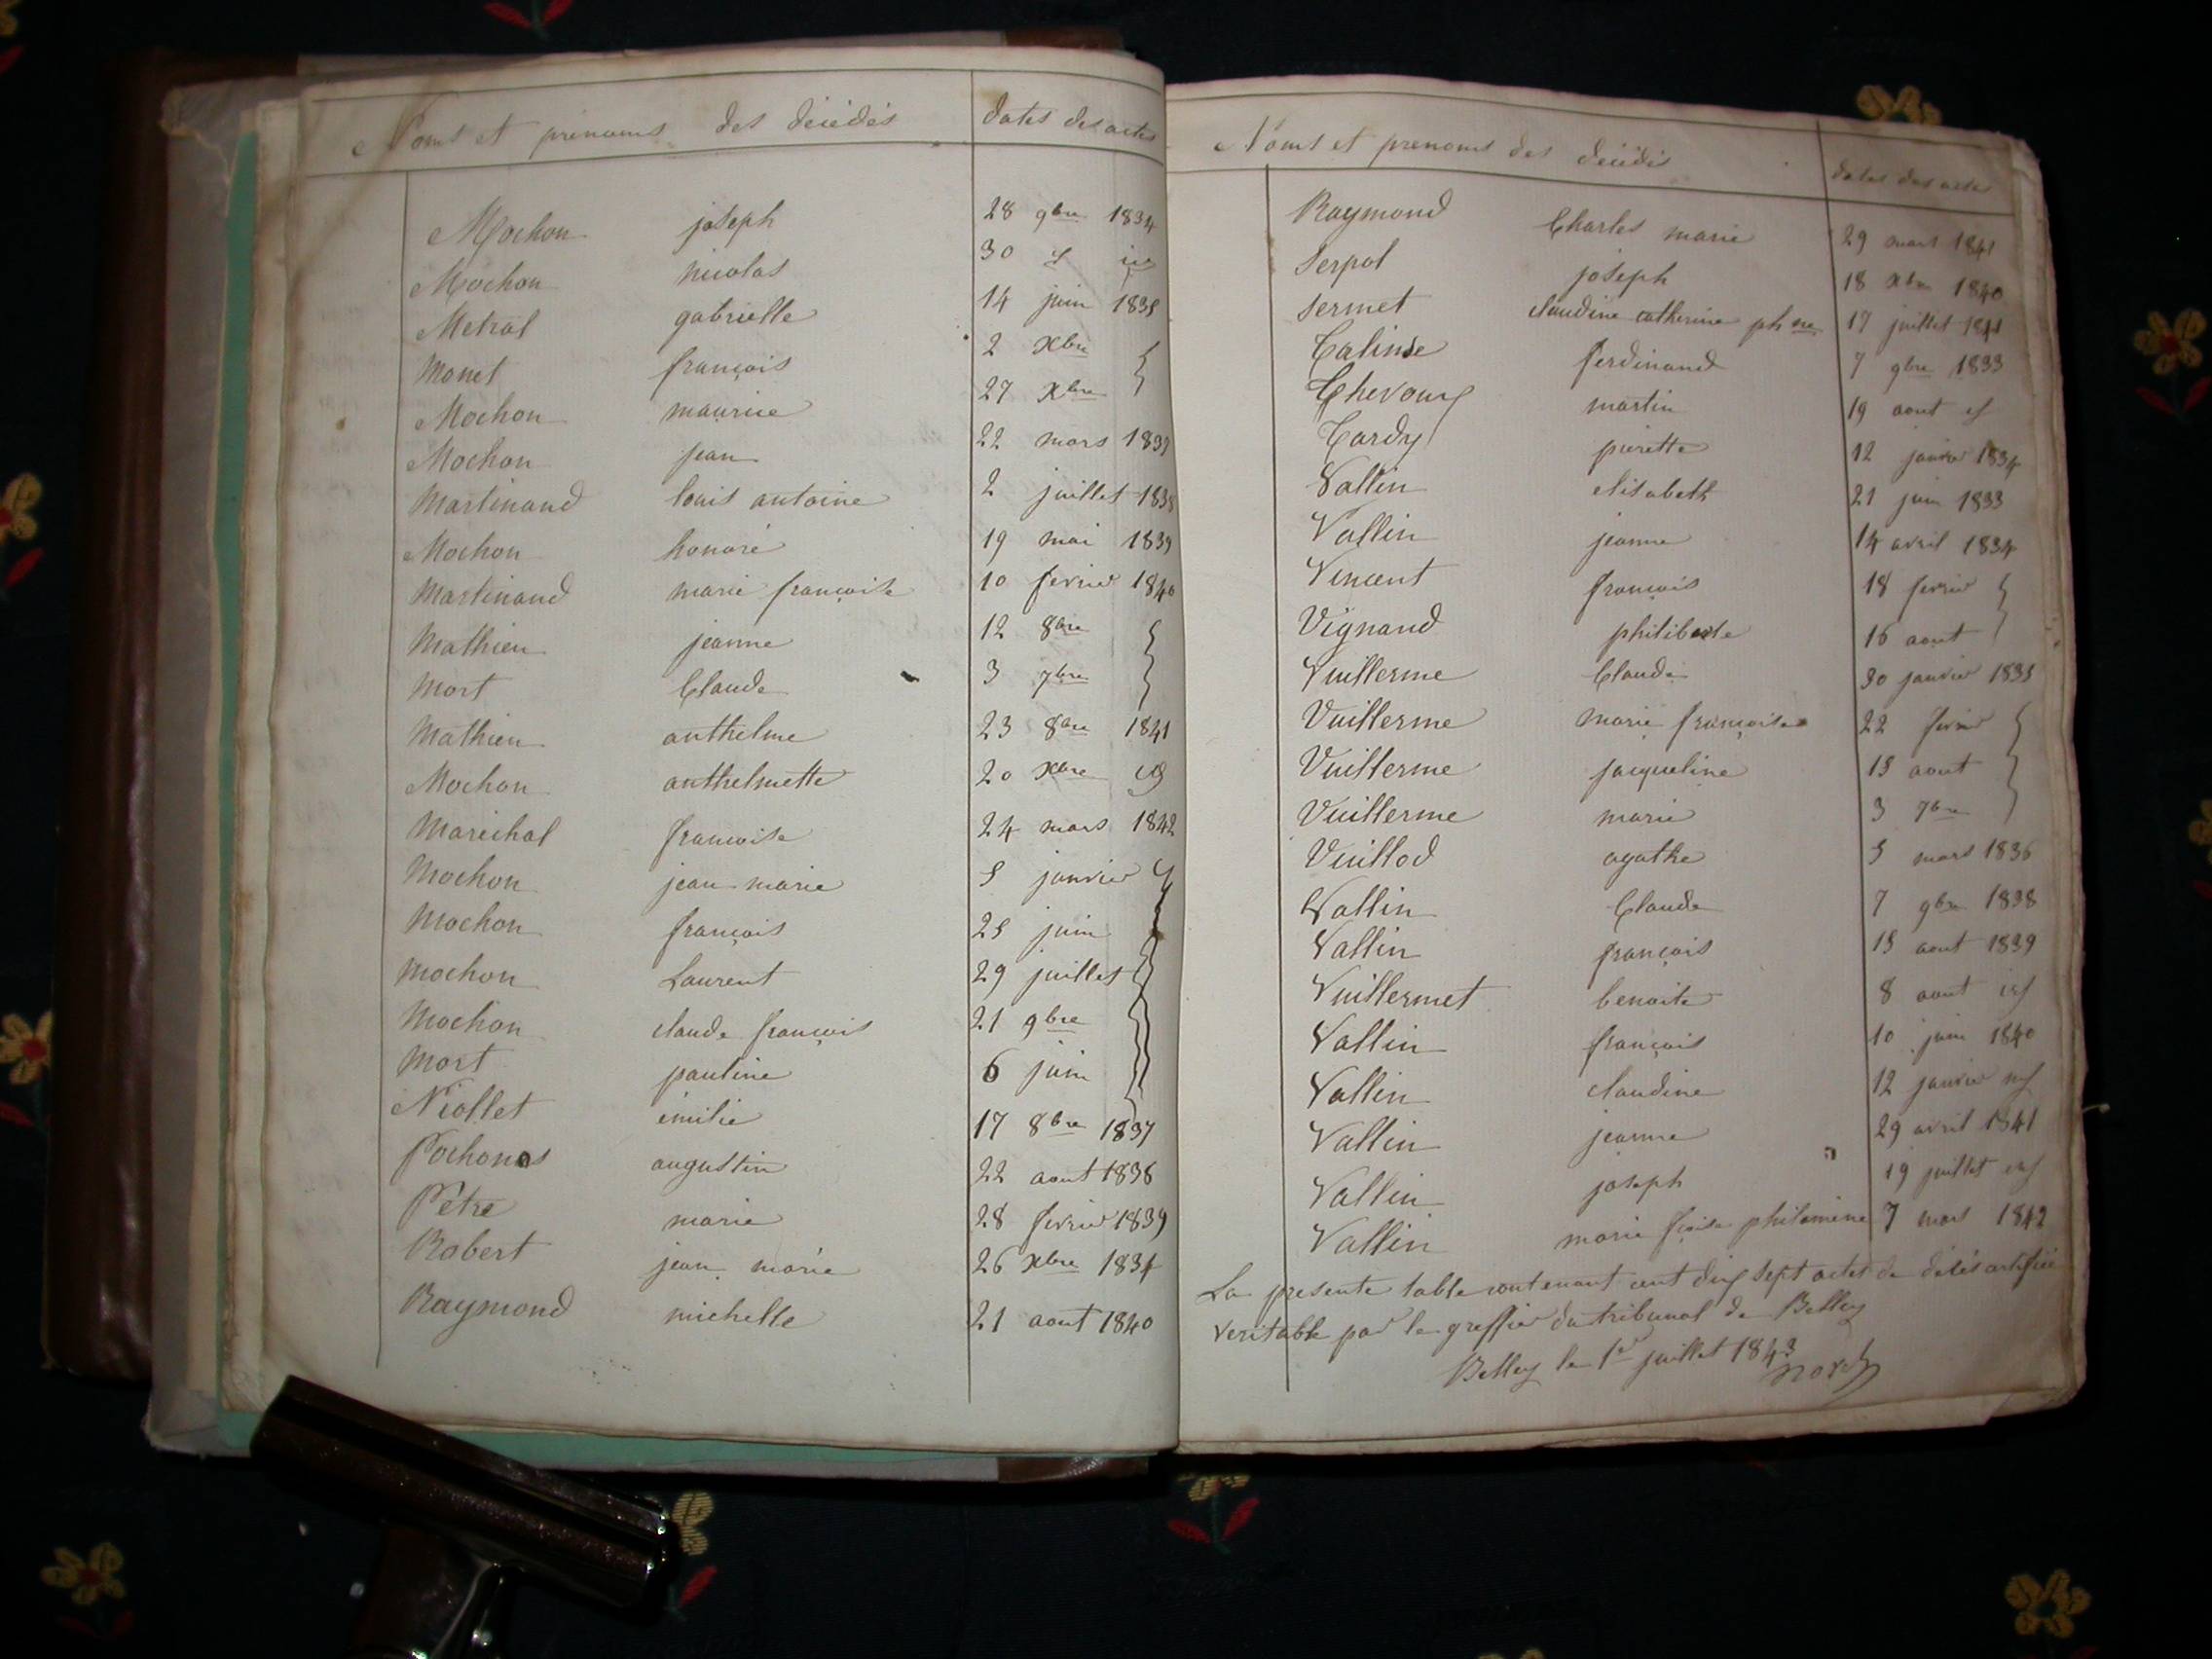 Noms et prenoms des décédés dates des actes
Mochon joseph 28 9bre 1834
Mochon nicolas 30
Metral gabrielle 14 juin 1835
Monet françois 2 Xbre
Mochon maurice 27 Xbre
Mochon jean 22 mars
Martinand louis antoine 2 juillet 1838
Mochon honoré 19 mai 1839
Martinand marie françoise 10 fevrier 1840
Mathieu jeanne 12 8bre
Mort Claude 3 7bre
Mathieu anthelme 23 8bre 1841
Mochon anthelmette 20 Xbre
Marechal francoise 24 mars 1842
Mochon jean marie 5 janvier
Mochon françois 25 juin
Mochon Laurent 29 juillet
Mochon claude françois 21 9bre
Mort pauline 6 juin
Niollet émilie 17 8bre 1837
augustin 22 aout
Petre marie 28 fevrier 1839
Robert jean marie 26 Xbre 1834
Raymond michelle 21 aout 1840
Noms et prenoms des décédés dates des actes
Raymond Charles marie 29 mars 1841
Serpol joseph 18 Xbre 1840
Sermet claudine catherine ph ne 17 juillet 1841
ferdinand 7 9bre 1833
martin 19 aout
Tardy pierette 12 janvier 1834
Vallin elisabeth 21 juin 1833
Vallin jeanne 14 avril 1834
Vincent françois 18 fevrier
Vignand philiberte 16 aout
Vuillerme Claude 30 janvier 1835
Vuillerme marie françoise 22 fevrier
Vuillerme jacqueline 15 aout
Vuillerme marie 3 7bre
Vuillod agathe 5 mars 1836
Vallin Claude 7 9bre 1838
Vallin françois 15 aout 1839
Vuillermet benoite 8 aout
Vallin françois 10 juin 1840
Vallin claudine 12 janvier
Vallin jeanne 29 avril 1841
Vallin joseph 19 juillet
Vallin marie fçoise philomene 7 mars 1842
La presente table contenant cent dix sept actes de décés certifiée
veritable par le greffier du tribunal de Belley
Belley le 1er juillet 1843